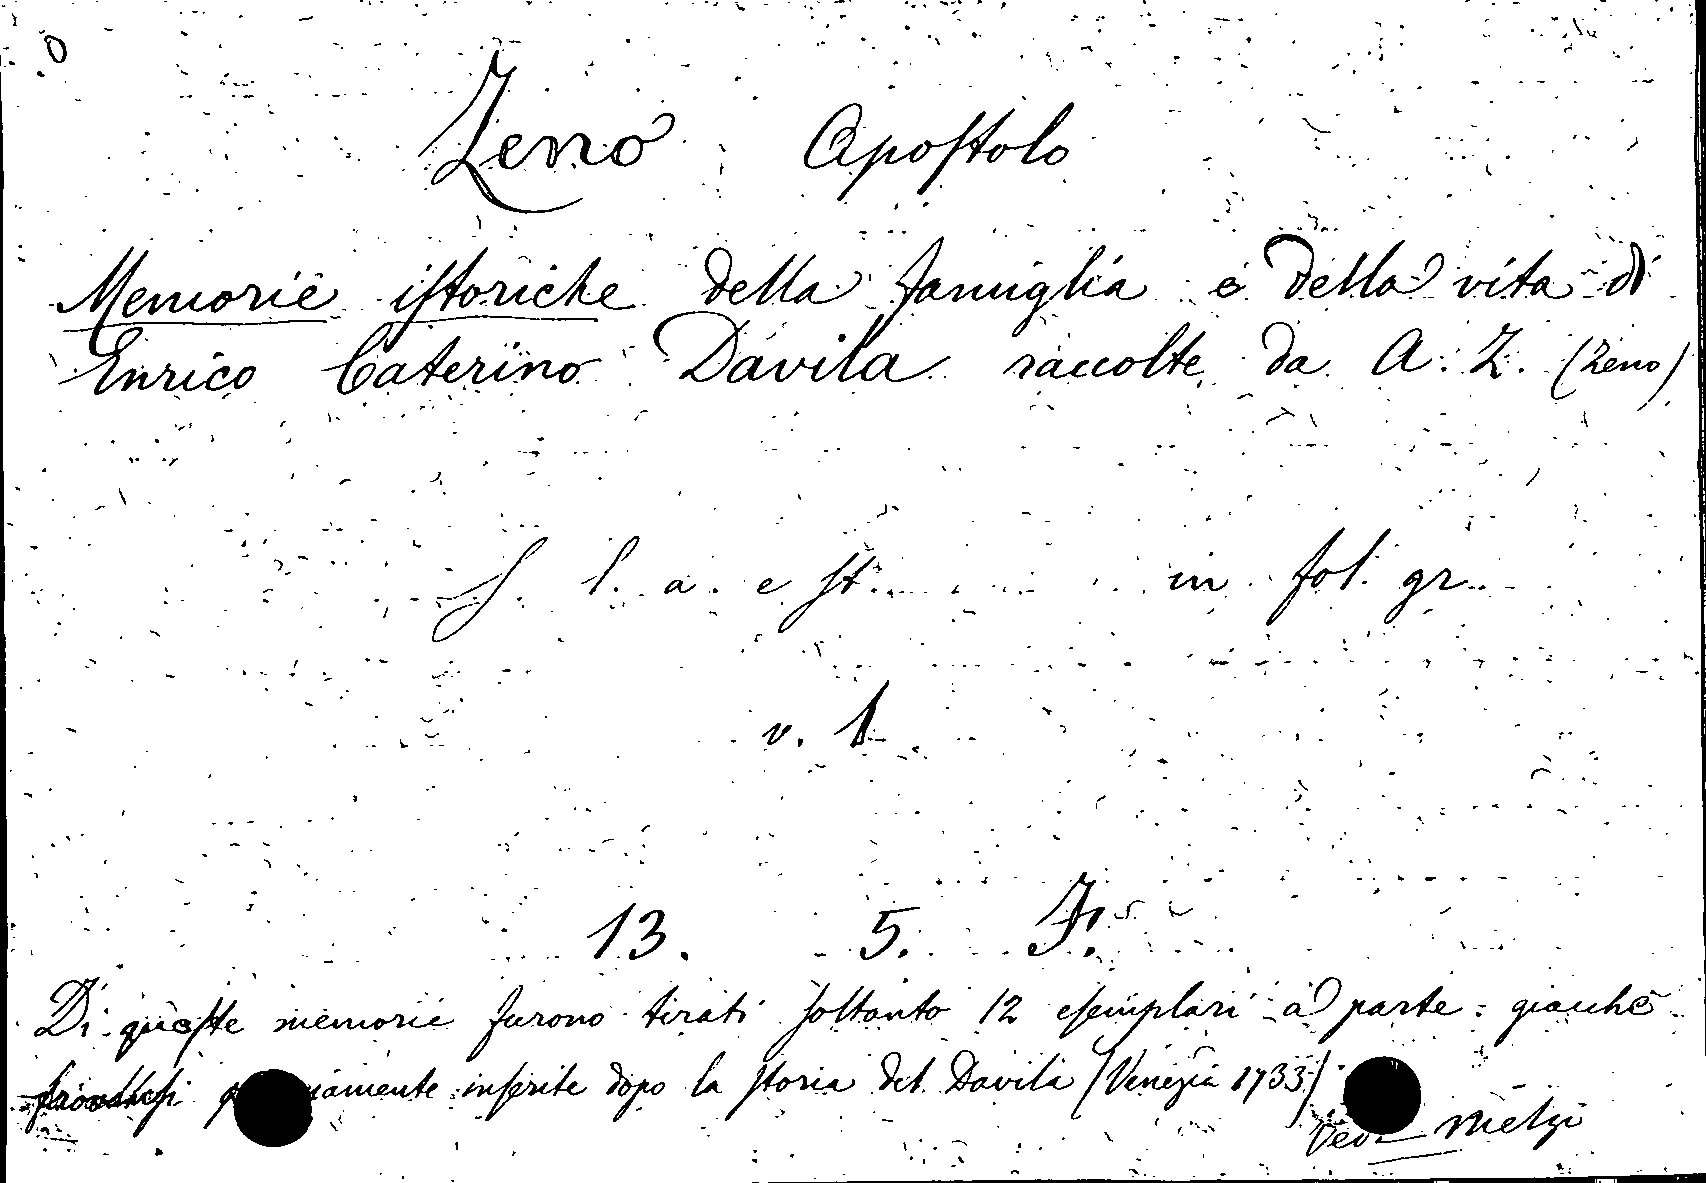 O
Zeno Apostolo
Memorie istoriche della famiglia e della vita di
Enrico Caterino Davila raccolte da A. Z. (Zeno)
S. l. a. e st. in fol. gr.
v. 1
13. 5. I.
Di queste memorie furono tirati soltanto 12 esemplari a parte: giacchè
inserite dopo la storia del Davila (Venezia 1733)
Vedi Melzi